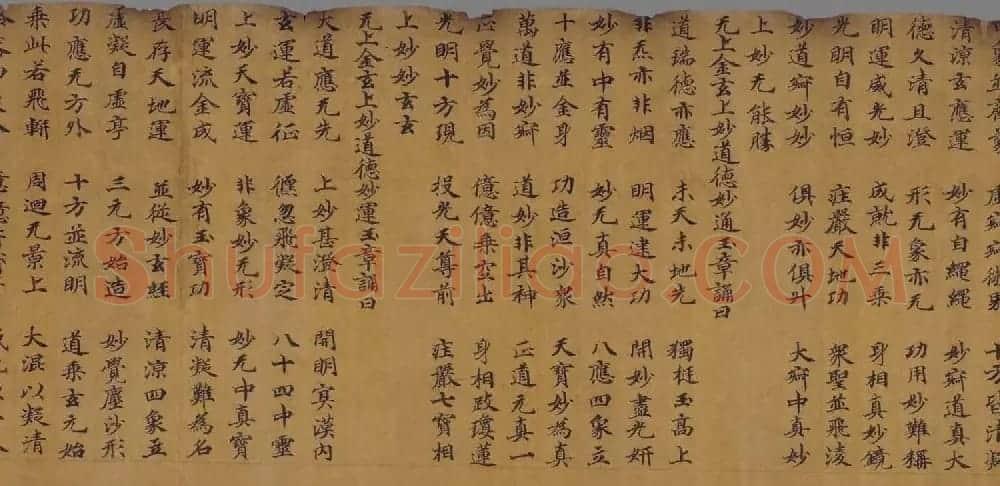 清涼玄應運 妙有自繩繩 妙辯道真大
德久清且澄 形无象亦无 功用妙難稱
明運威光妙 成就非三乘 身相真妙鏡
光明自有恒 莊嚴天地功 衆聖並飛淩
妙道辯妙妙 俱妙亦俱升 大辯中真妙
上妙无能勝
无上金玄上妙道德妙通玉章誦曰
道瑞德亦應 未天未地先 獨挺玉高上
非炁亦非烟 明運逮大功 開妙盡光妍
妙有中有靈 妙无真自然 八應四象立
十應並金身 功造洹沙衆 天寶妙為真
萬道非妙辯 道妙非其神 正道元真一
正覺妙為因 億億乘玄出 身相政瓊蓮
光明十方現 投光天尊前 莊嚴七寶相
上妙妙玄玄
无上金玄上妙道德妙運玉章誦曰
大道應无先 上妙甚澄清 開明冥漢内
玄運若虛征 忽飛凝定 八十四中靈
上妙天寶運 非象妙无形 妙无中真寶
明運流金成 妙有玉寶功 清凝難為名
長存天地運 並從妙玄經 清涼四象立
虛凝自虛亭 三元方始造 妙覺塵沙形
功應无方外 十方並流明 道乘玄元始
乘此若飛軿 周迴无景上 大混以凝清
Shufaziliao.COM